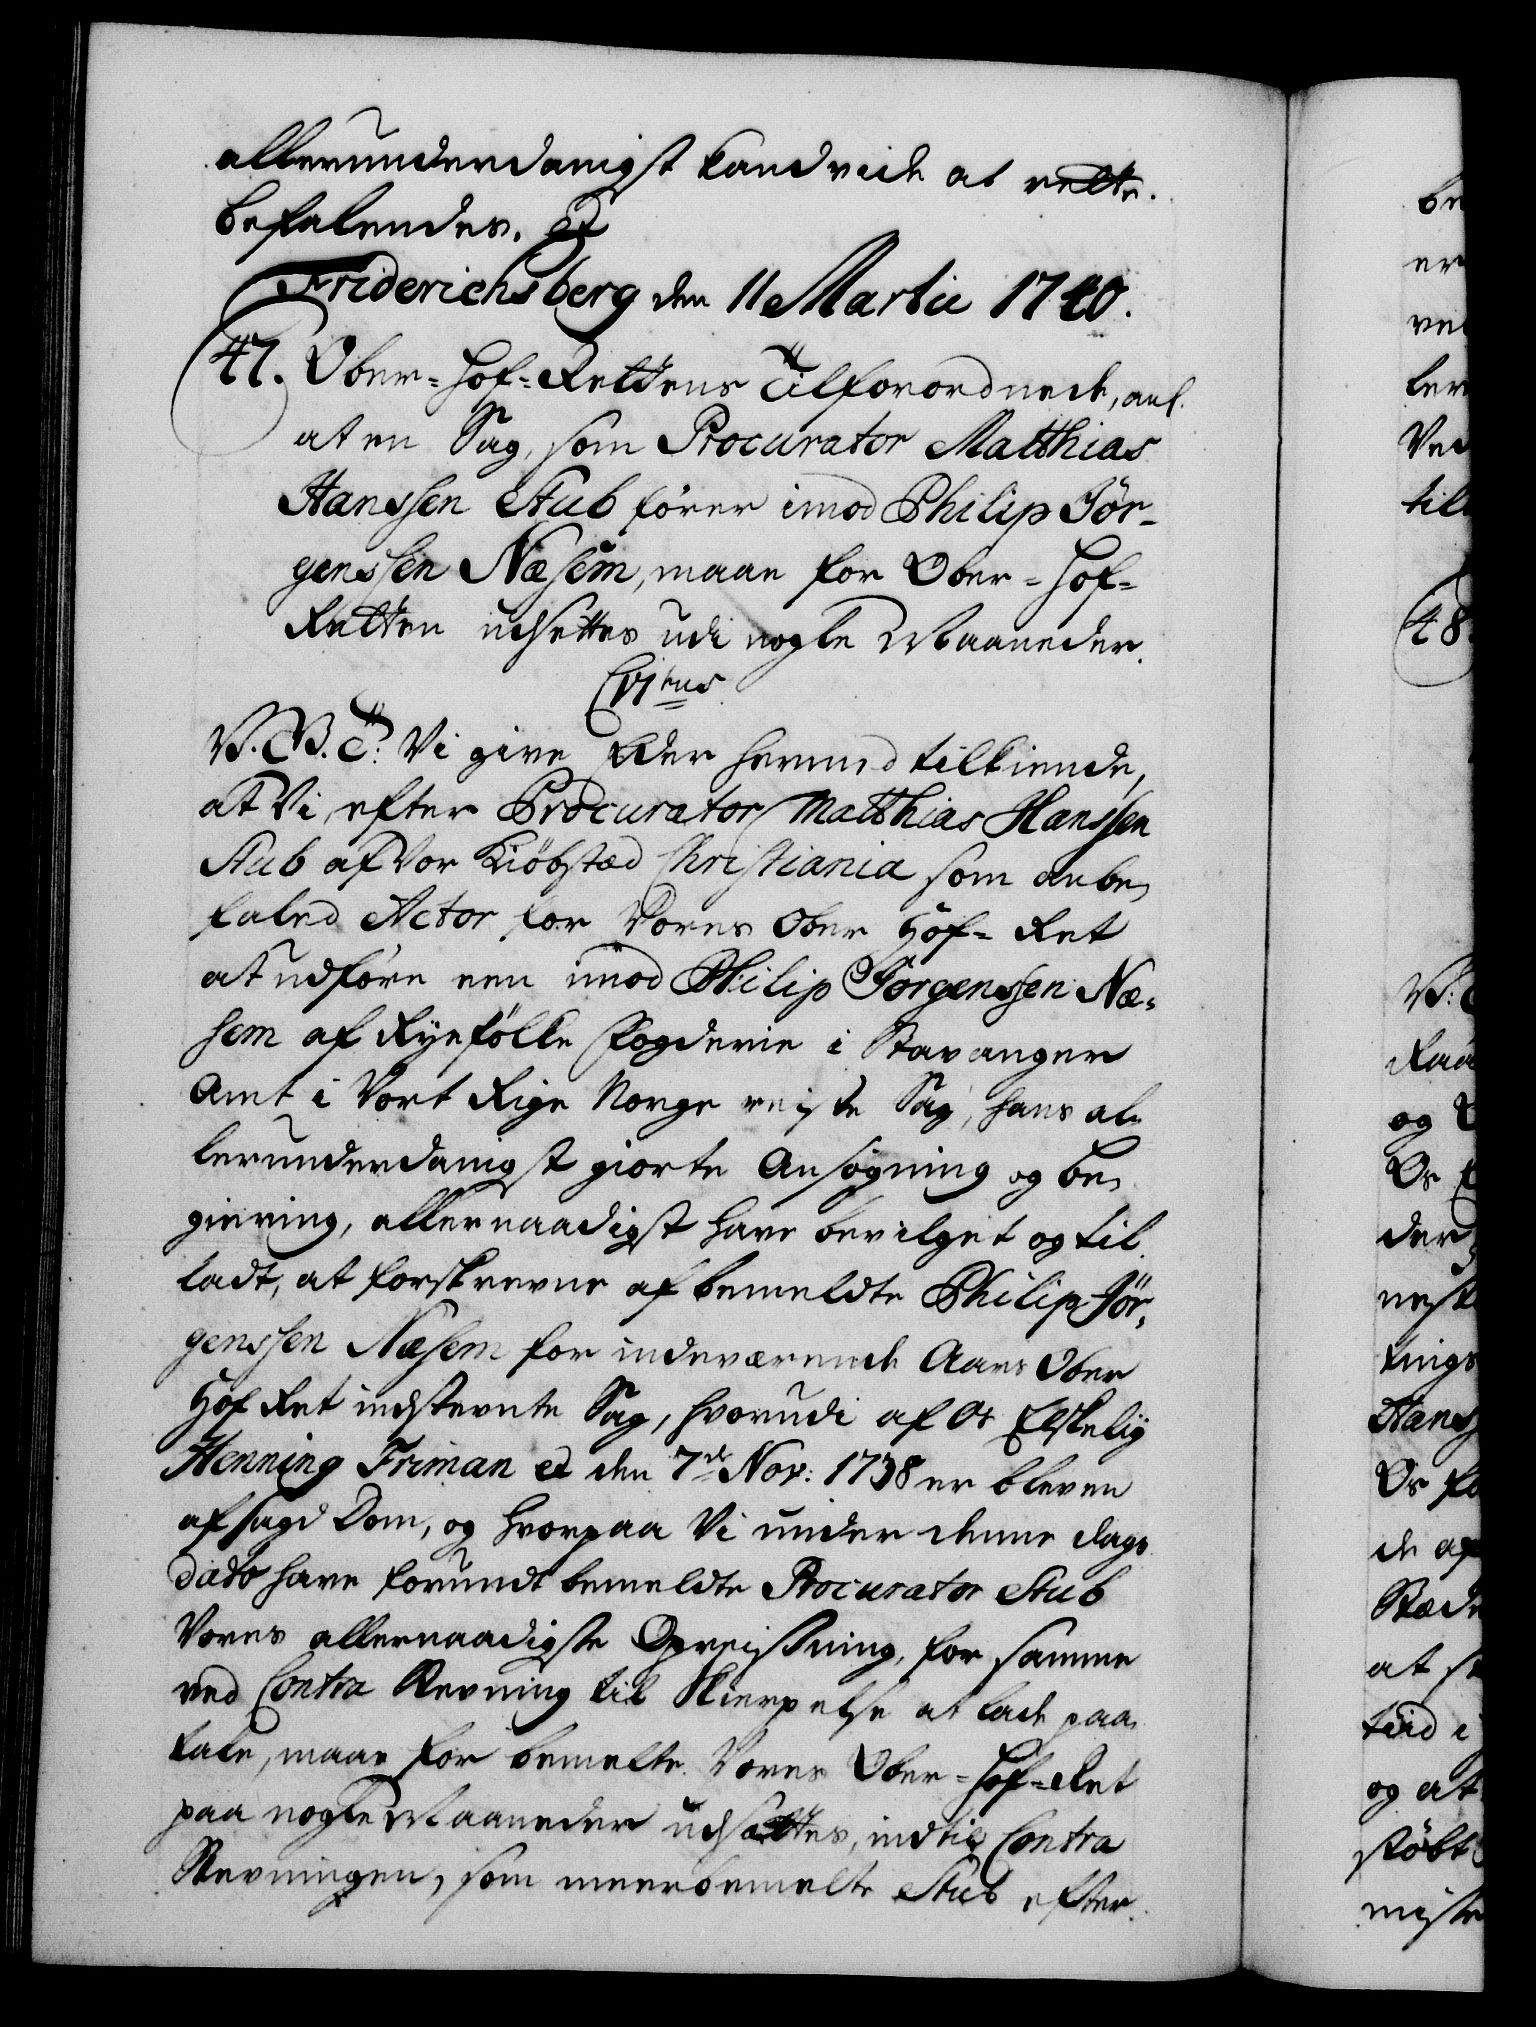 allerunderdanigst kand vide at rette.
befalendes.
Friderichsberg den 11 Martii 1740.
47. Ober-Hof-Rettens Tilforordnede, anl.
at en Sag, som Procurator Matthias
Hanssen Stub fører imod Philip Jør-
genssen Næsem, maae for Ober-Hof-
Retten udsettes udi nogle Maaneder.
C VItus
V. G. T. Vi give Eder hermed tilkiende,
at Vi, efter Procurator Matthias Hanssen
Stub af Vor Kiøbstæd Christiania som anbe,
faled Actor for Vores Ober Hof-Ret
at udføre een imod Philip Jørgenssen Næ-
sem af Ryefølke Fogderie i Stavanger
Amt i Vort Rige Norge reiste Sag, hans al-
lerunderdanigst giorte Ansøgning og be,
giering, allernaadigst have bevilget og til
ladt, at forskrevne af bemeldte Philip Jør,
genssen Næsem for indeværende Aars Ober
Hof Ret indstevnte Sag, hvorudi af Os Elskelig
Henning Friman d den 7de Nov: 1738 er bleven
afsagd Dom, og hvorpaa Vi under denne dags
dato have forundt bemeldte Procurator Stub
Vores allernaadigste Opreisning, for samme
ved Contra Stevning til Skierpelse at lade paa,
tale, maae for bemelte Vores Ober-Hof-Ret
paa nogle Maaneder udsættes, indtil Contra
Stevningen, som meerbemelte Stub efter.
48